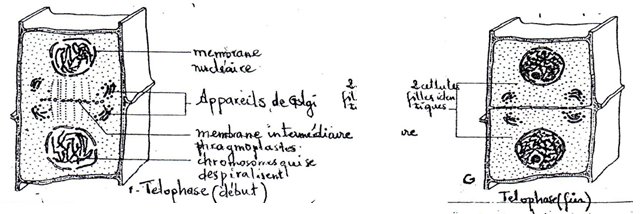 membrane
nucléaire
Appareils de Golgi
membrane intermédiaire
phragmoplastes
chromosomes qui se
despiralisent
F-Telophase (début)
2
fil
tri
re
2 cellules
filles iden
tiques
G
Telophase (fin)